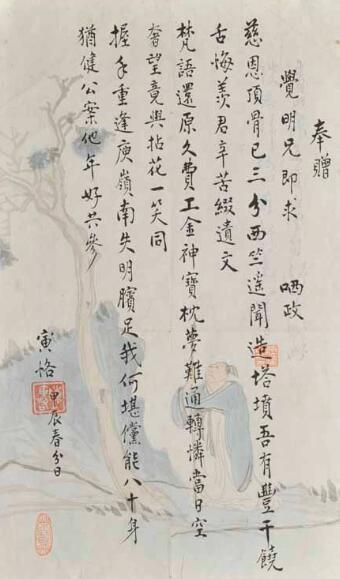 奉贈
覺明兄即求 哂政
慈恩頂骨已三分西竺遙聞造塔墳吾有豐干饒
舌悔羨君辛苦綴遺文
梵語還原久費工金神寶枕夢難通轉憐當日空
奢望竟與拈花一笑同
握手重逢庾嶺南失明臏足我何堪儻能八十身
猶健公案他年好共參
寅恪
甲辰春分日